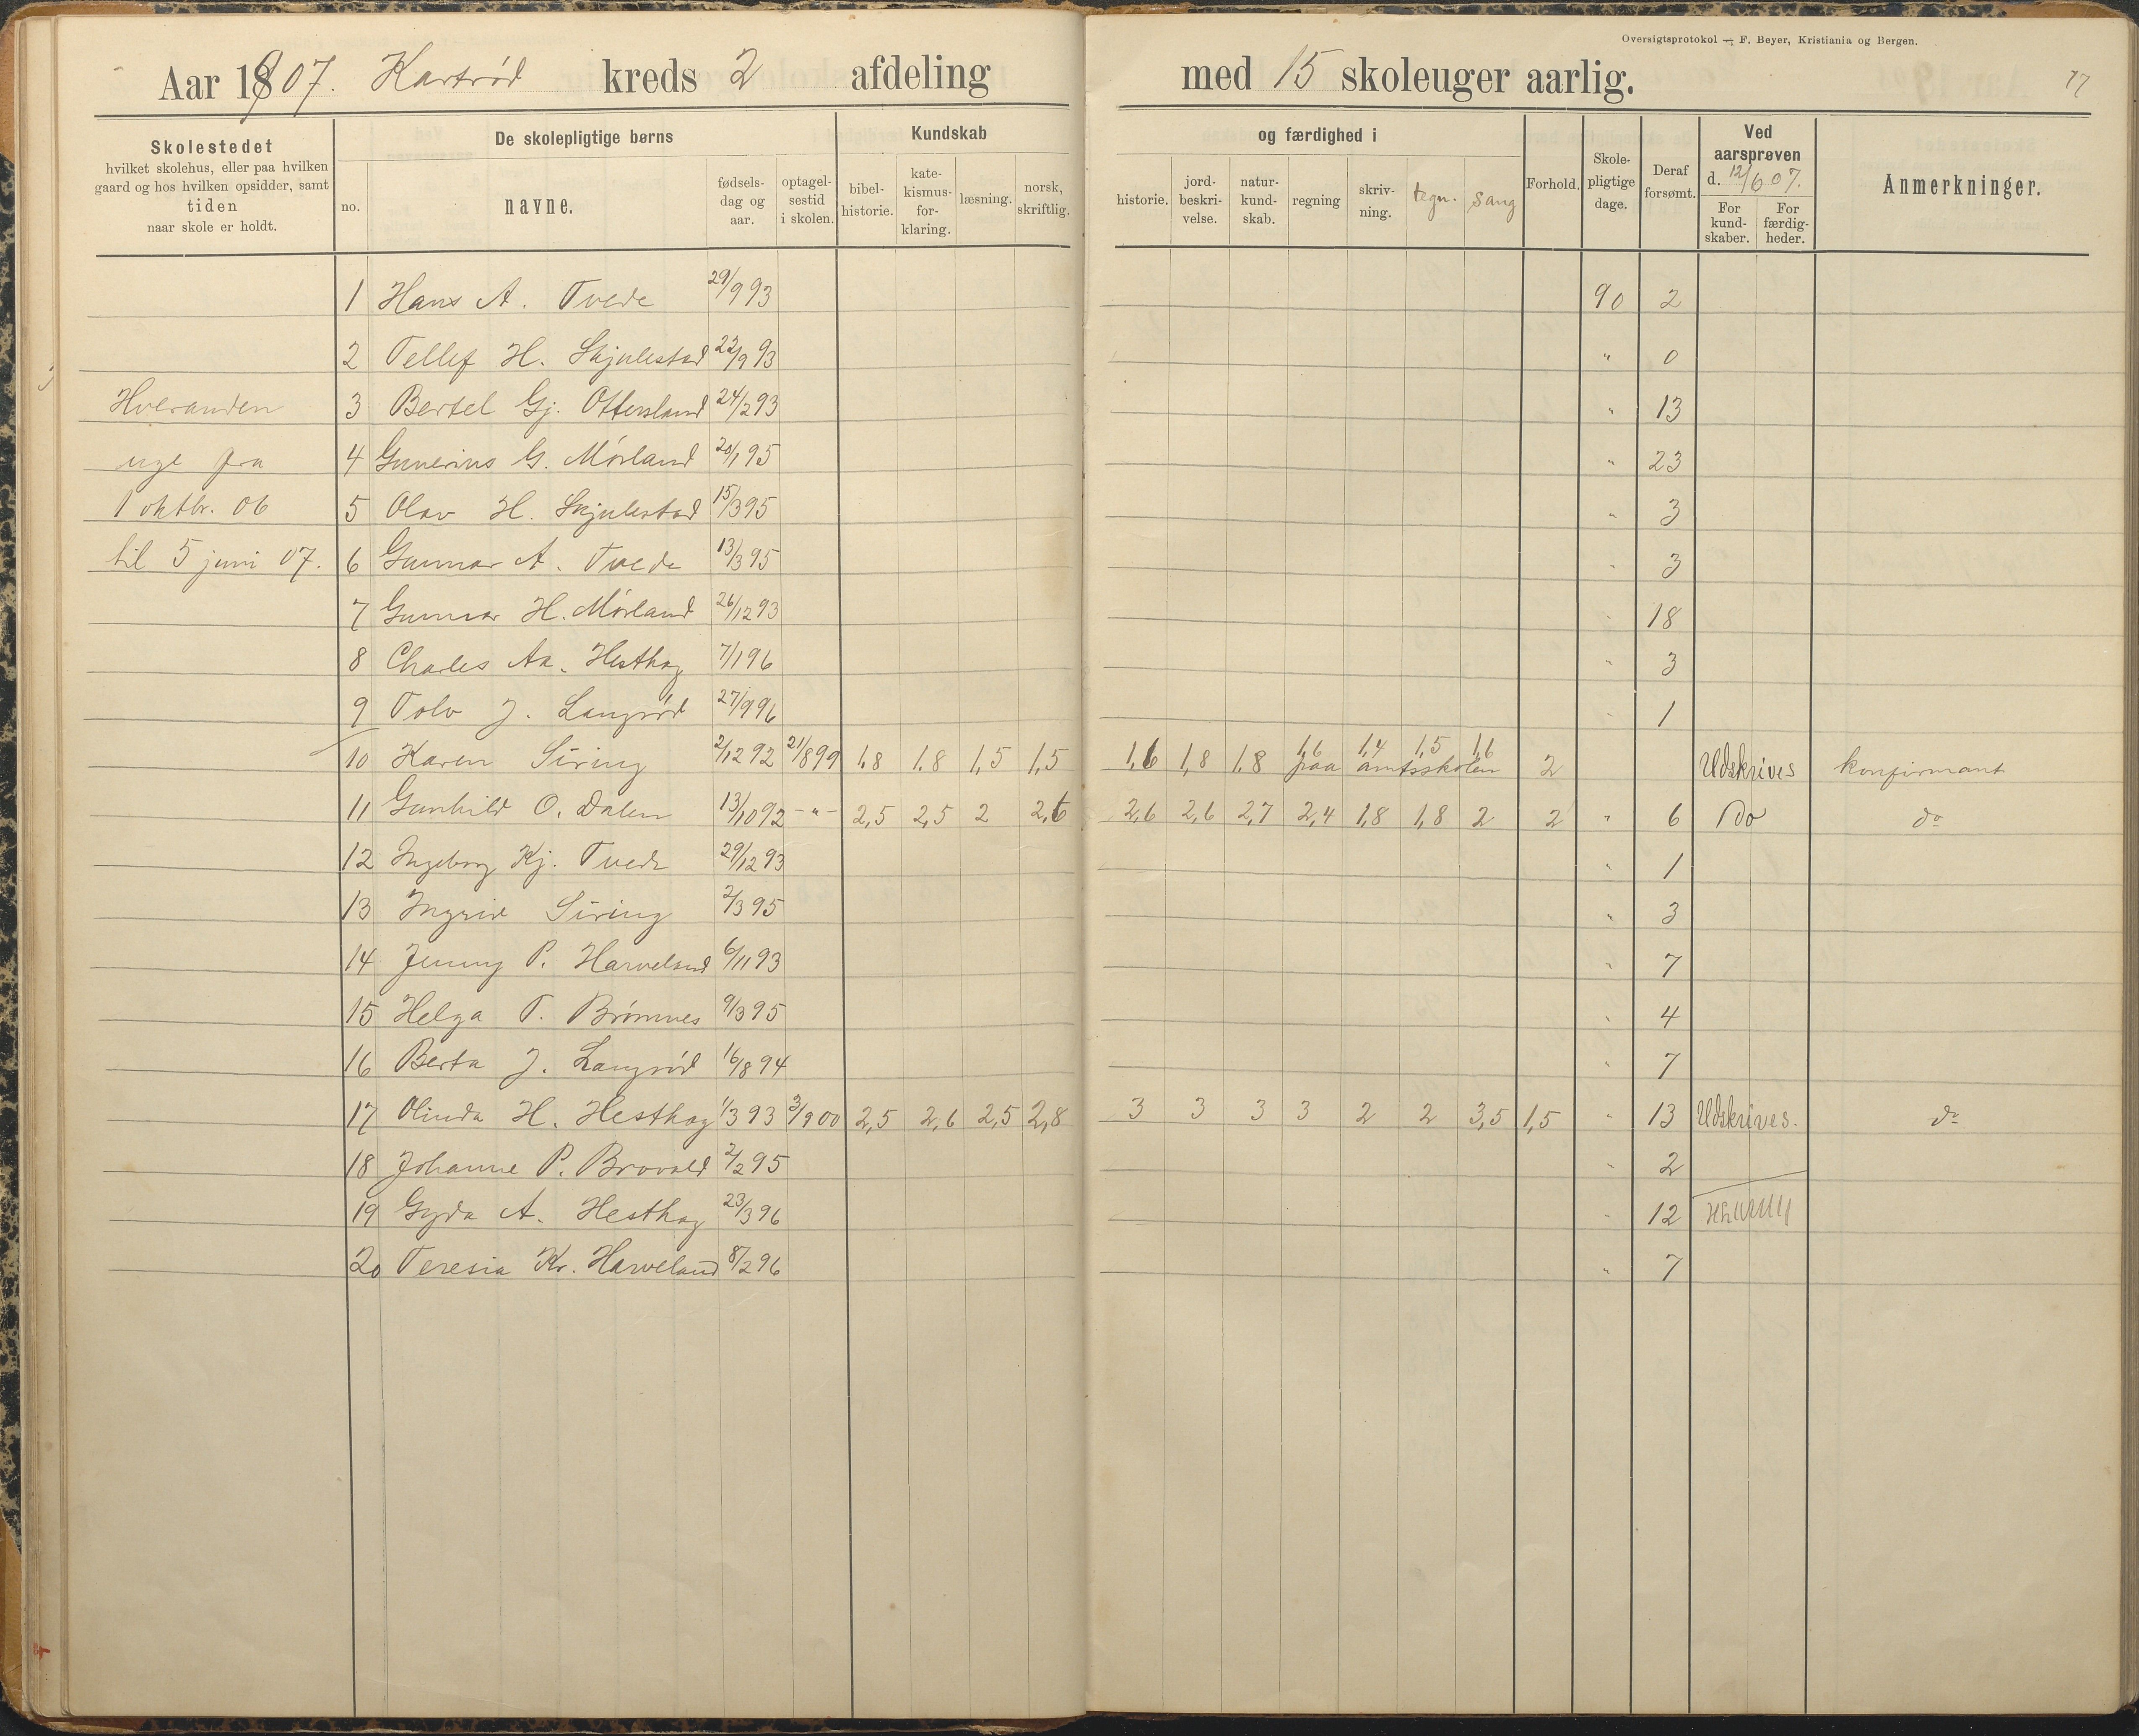 Oversigtsprotokol — F. Beyer, Kristiania og Bergen.
Aar 1907. Kartrød kreds 2 afdeling med 15 skoleuger aarlig. 17
Skolestedet hvilket skolehus, eller paa hvilken gaard og hos hvilken opsidder, samt tiden naar skole er holdt.
De skolepligtige børns
no. navne. fødsels-dag og aar. optagel-sestid i skolen.
Kundskab og færdighed i
bibel-historie. kate-kismus-for-klaring. læsning. norsk, skriftlig. historie. jord-beskri-velse. natur-kund-skab. regning skriv-ning. tegn. sang
Forhold. Skole-pligtige dage. Deraf forsømt.
Ved aarsprøven d. 12/6 07. For kund-skaber. For færdig-heder.
Anmerkninger.
1 Hans A. Tvede 29/9 93 90 2
2 Tellef H. Skjulestad 22/9 93 " 0
Hveranden 3 Bertel Gj. Ottersland 24/2 93 " 13
uge fra 4 Gunerius G. Mørland 20/1 95 " 23
1 oktbr. 06 5 Olav H. Skjulestad 15/3 95 " 3
til 5 juni 07. 6 Gunnar A. Tvede 13/3 95 " 3
7 Gunnar H. Mørland 26/12 93 " 18
8 Charles Aa. Hesthag 7/1 96 " 3
9 Tolv J. Langrød 27/9 96 " 1
10 Karen Siring 2/12 92 21/8 99 1,8 1.8 1,5 1,5 1,6 1,8 1.8 1,6 1,4 1,5 1,6 paa amtsskolen 2 Udskrives konfirmant
11 Gunhild O. Dalen 13/10 92 -"- 2,5 2,5 2 2,6 2,6 2,6 2,7 2,4 1,8 1,8 2 2 " 6 Do do
12 Ingeborg Kj. Tvede 29/12 93 " 1
13 Ingrid Siring 2/3 95 " 3
14 Jenny P. Harveland 6/11 93 " 7
15 Helga T. Brømnes 9/3 95 " 4
16 Berta J. Langrød 16/8 94 " 7
17 Olinda H. Hesthag 1/3 93 3/9 00 2,5 2,6 2,5 2,8 3 3 3 3 2 2 3,5 1,5 " 13 Udskrives. do
18 Johanne P. Brovold 2/2 95 " 2
19 Gyda A. Hesthag 23/3 96 " 12
20 Teresia Kr. Harveland 8/2 96 " 7